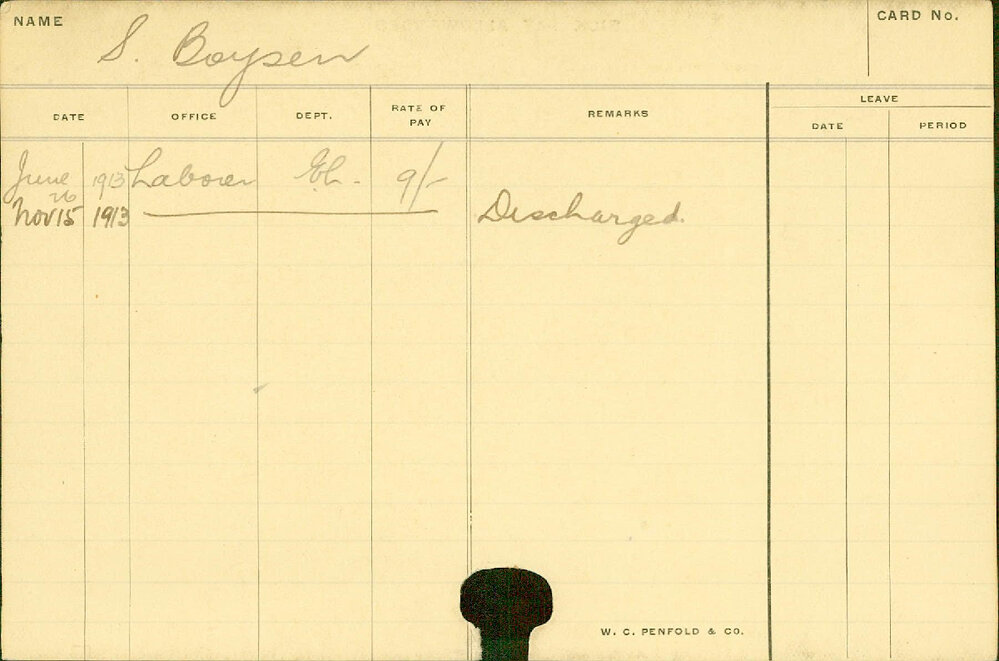 NAME
S. Boysen
CARD No.
DATE OFFICE DEPT. RATE OF PAY REMARKS LEAVE
DATE PERIOD
June 26 1913 Laborer 9/-
Nov 15 1913 Discharged.
W. C. PENFOLD & CO.